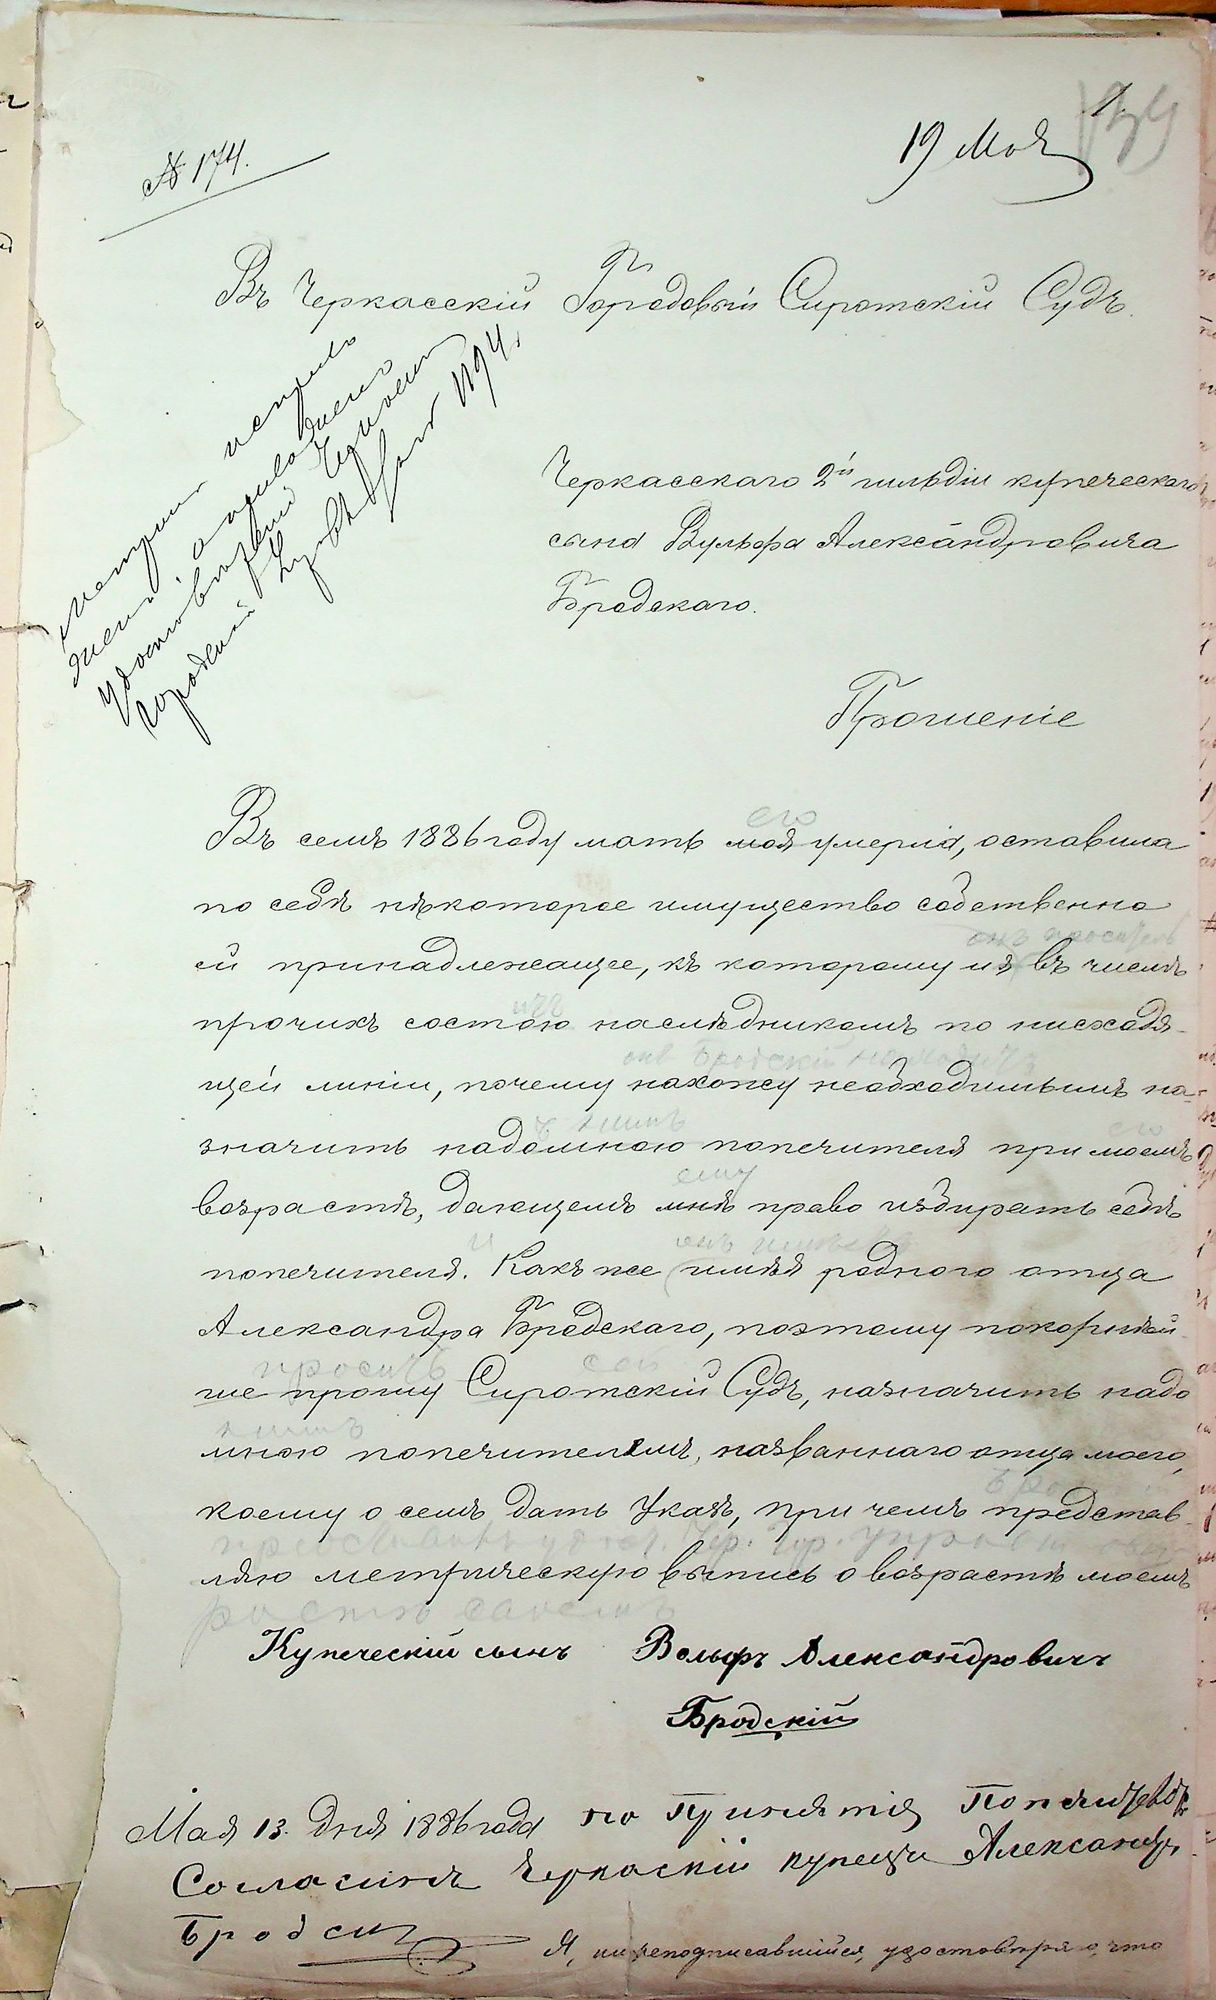 № 174.
19 Мая
139
Въ Черкасскій Городовый Сиротскій Судъ.
Черкасскаго 2й гильдіи купеческаго
сына Вульфа Александровича
Бродскаго.
Прошеніе
его
Въ семъ 1886 году мать моя умерла, оставила
по себѣ нѣкоторое имущество собственно
онъ проситель
ей принадлежащее, къ которому и я въ числѣ
прочихъ состою наслѣдникомъ по нисходя-
онъ Бродскій находитъ
щей линіи, почему нахожу необходимымъ на-
нимъ его
значить надомною попечителя при моемъ
ему
возрастѣ, дающемъ мнѣ право избирать себѣ
и онъ
попечителя. Какъ же имѣя родного отца
Александра Бродскаго, поэтому покорнѣй-
проситъ сей
ше прошу Сиротскій Судъ, назначить надо
нимъ
мною попечителемъ, названнаго отца моего,
коему о семъ дать Указъ, при чемъ представ-
ляю метрическую выпись о возрастѣ моемъ
растѣ своемъ
Купеческій сынъ Вольфъ Александровичъ
Бродскій
Мая 13. дня 1886 года по принятія
Согласинъ Черкаскій купецъ Александръ
Бродски
Я, нижеподписавшійся, удостовѣряю, что